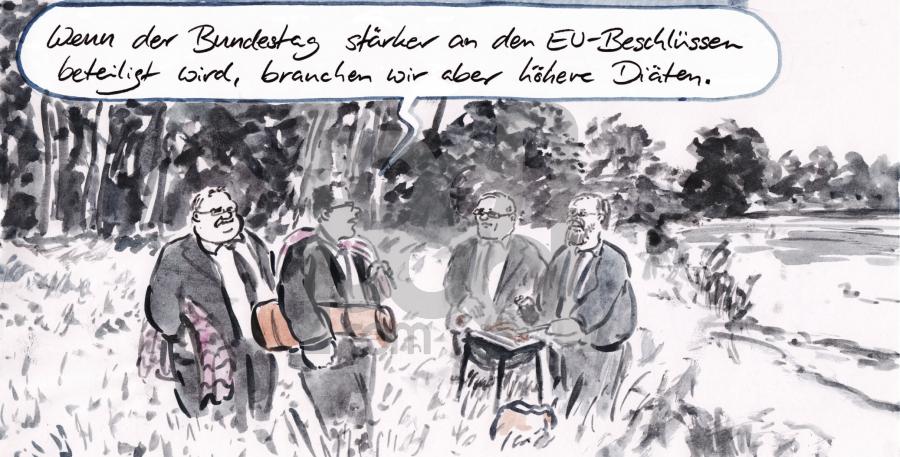 Wenn der Bundestag stärker an den EU-Beschlüssen
beteiligt wird, brauchen wir aber höhere Diäten.